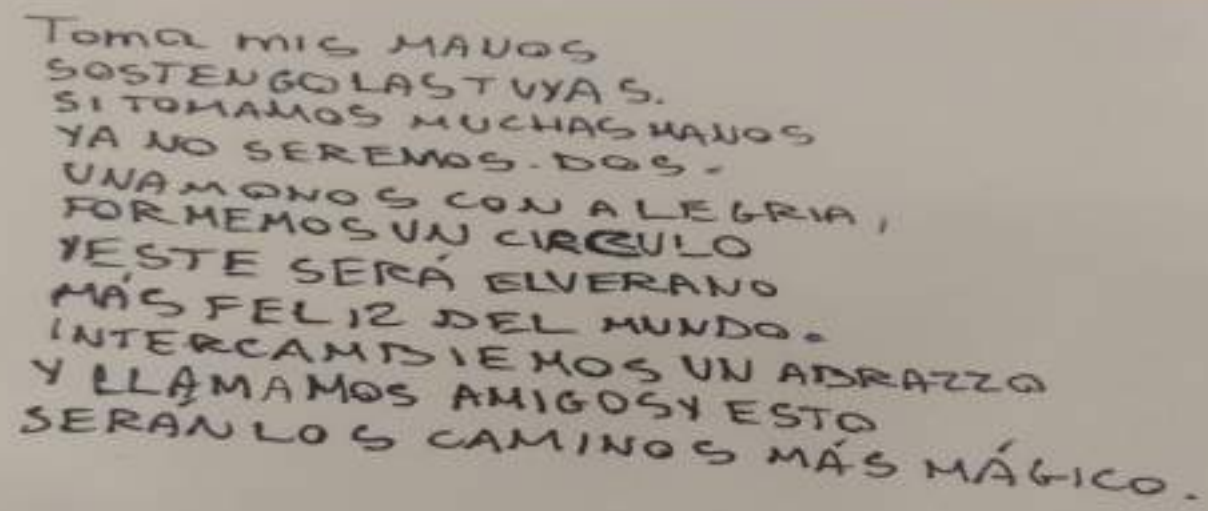 Toma mis MANOS
SOSTENGO LAS TUYAS.
SI TOMAMOS MUCHAS MANOS
YA NO SEREMOS. DOS.
UNAMONOS CON ALEGRIA,
FORMEMOS UN CIRCULO
Y ESTE SERÁ EL VERANO
MÁS FELIZ DEL MUNDO.
INTERCAMBIEMOS UN ABRAZZO
Y LLAMAMOS AMIGOS Y ESTO
SERÁN LOS CAMINOS MÁS MÁGICO.